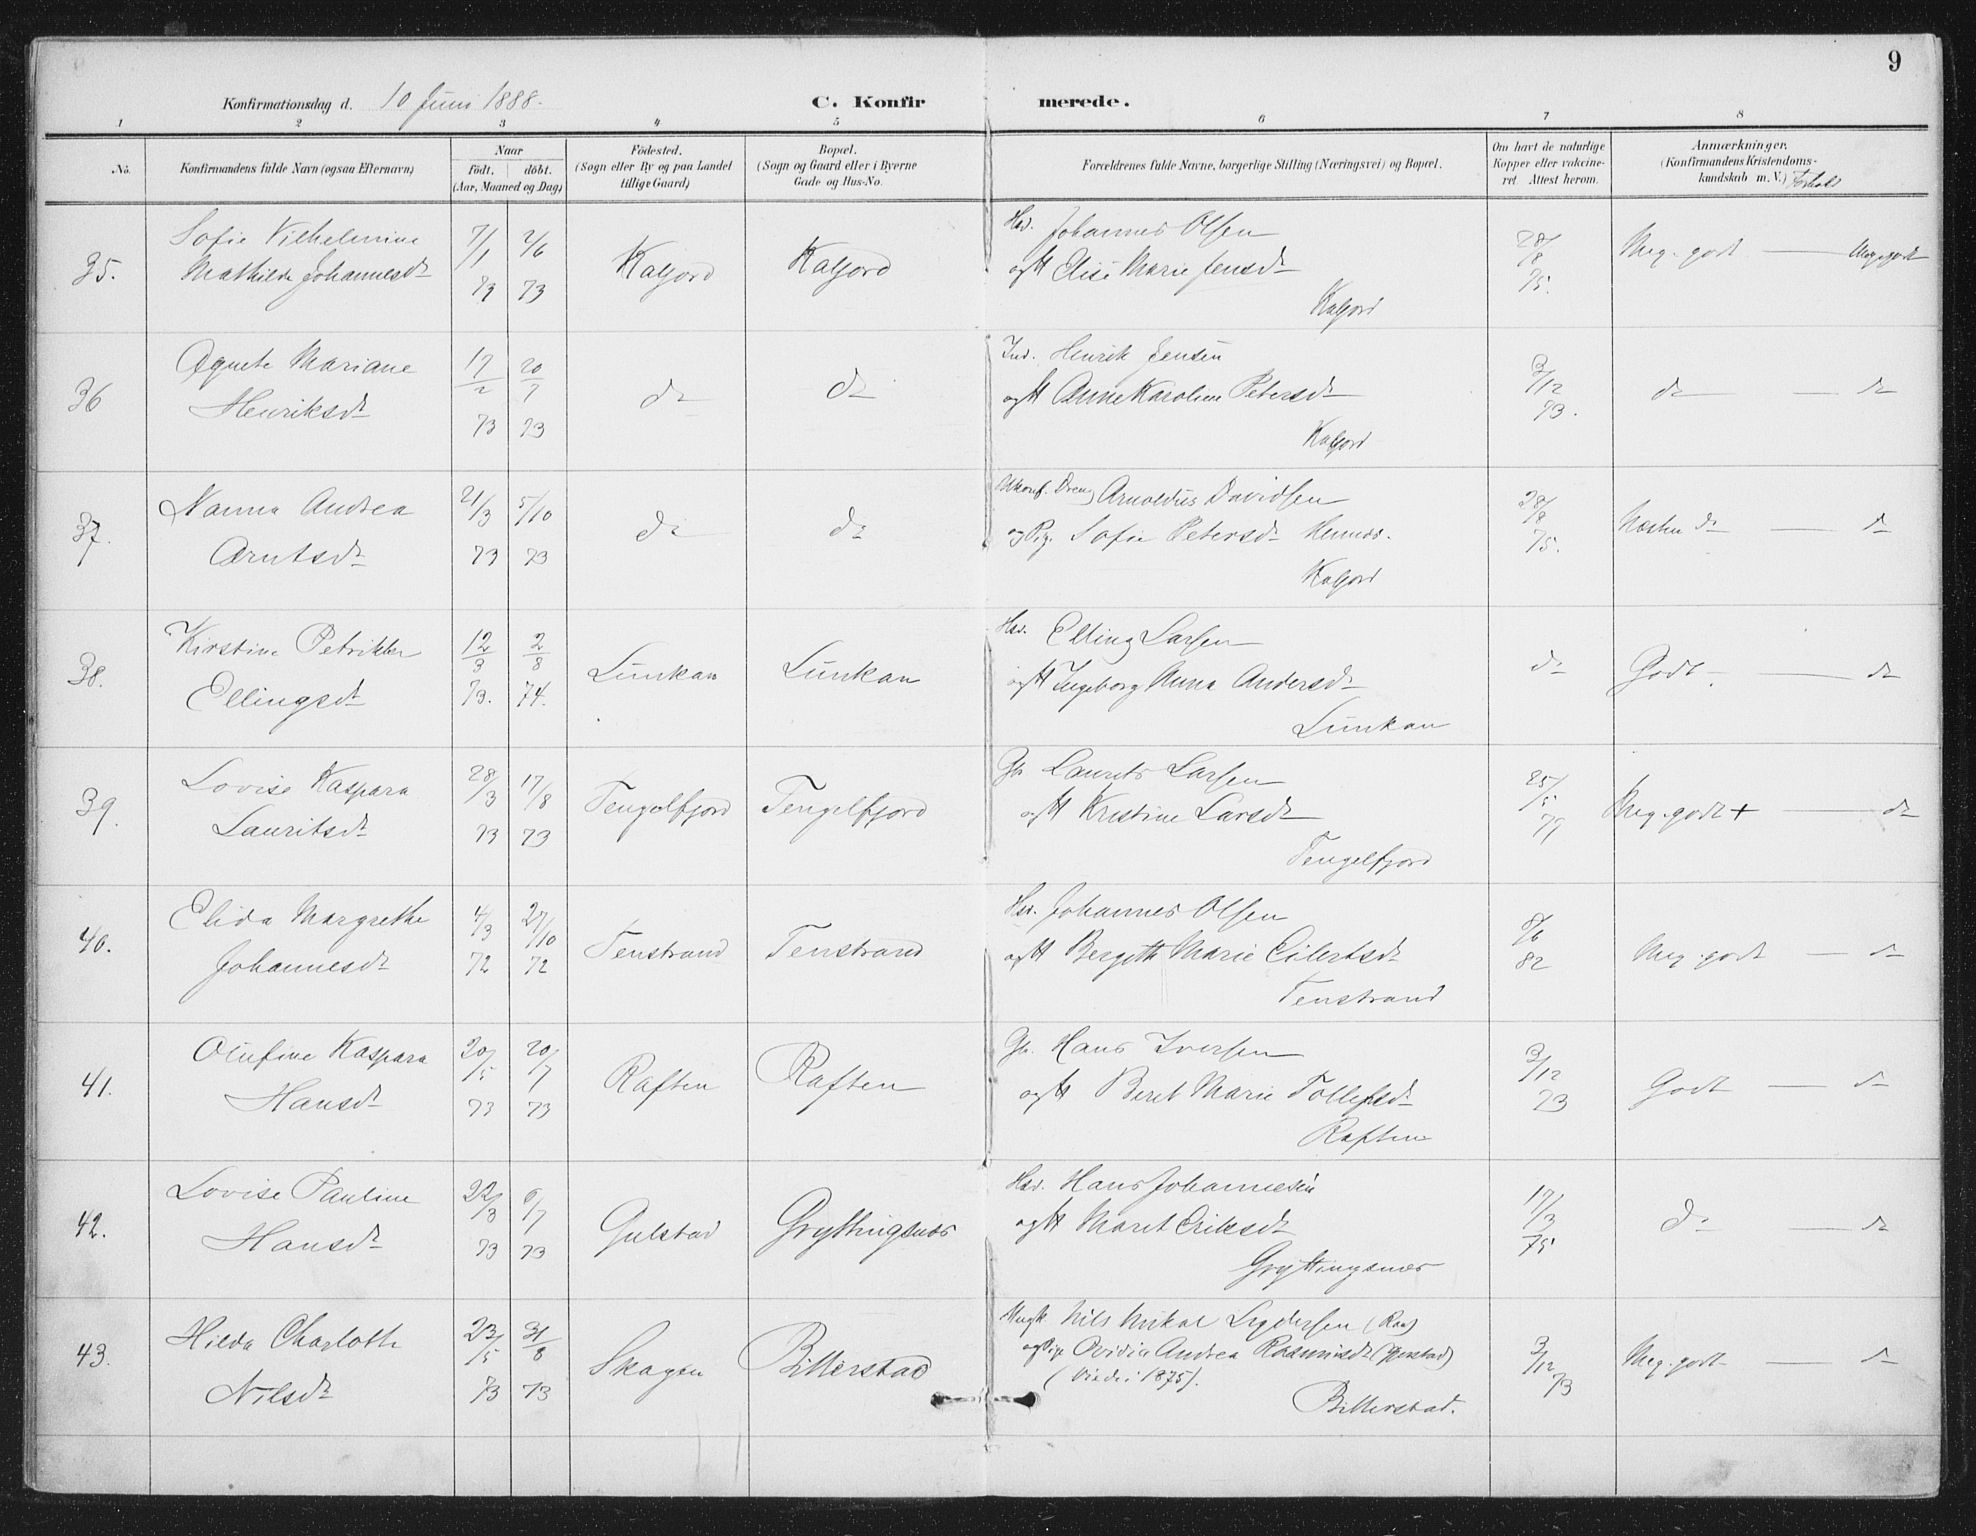 9
Konfirmationsdag d. 10 Juni 1888.
C. Konfirmerede.
1 2 3 4 5 6 7 8
No.
Konfirmandens fulde Navn (ogsaa Efternavn)
Naar
födt. döbt.
(Aar, Maaned og Dag)
Födested.
(Sogn eller By og paa Landet
tillige Gaard)
Bopæl.
(Sogn og Gaard eller i Byerne
Gade og Hus-No.
Forældrenes fulde Navne, borgerlige Stilling (Næringsvei) og Bopæl.
Om havt de naturlige
Kopper eller vakcine-
ret Attest herom.
Anmærkninger.
(Konfirmandens Kristendoms-
kundskab m. V.) Forhold
35.
Sofie Vilhelmine
Mathilde Johannesdt
7/1 73
2/6 73
Kaljord
Kaljord
Hsd. Johannes Olsen
og H Elise Marie Jensdt
Kaljord
28/8 75.
Meg. godt — Meg. godt
36
Agnete Mariane
Henriksdt
17/2 73
20/7 73
do
do
Ind. Henrik Jensen
og H Anne Karoline Petersdt
Kaljord
3/12 73.
do — do
37.
Nanna Andrea
Arntsdt
21/3 73
5/10 73
do
do
Ukonf. Dreng Arnoldus Davidsen
og Pig. Sofie Petersdt Hennes.
Kaljord
28/8 75.
Næsten do — do
38.
Kirstine Petrikke
Ellingsdt
12/3 73.
2/8 74.
Lunkan
Lunkan
Hsd. Elling Larsen
og H Ingeborg Anna Andersdt
Lunkan
do
Godt. — do
39.
Lovise Kaspara
Lauritsdt
28/3 73
17/8 73
Tengelfjord
Tengelfjord
Gb. Laurits Larsen
og H Kristine Larsdt
Tengelfjord
25/5 77
Meg. godt + — do
40.
Elida Margrethe
Johannesdt
4/3 72
27/10 72
Tenstrand
Tenstrand
Hsd. Johannes Olsen
og H Bergith Marie Eilertsdt
Tenstrand
8/6 82
Meg. godt — do
41.
Olufine Kaspara
Hansdt
20/5 73
20/7 73
Raften
Raften
Gb. Hans Iversen
og H Beret Marie Tollefsdt
Raften
3/12 73
Godt — do
42.
Lovise Pauline
Hansdt
22/3 73
6/7 73
Gulstad
Gryttingsnæs
Hsd. Hans Johannesen
og H Maret Eriksdt
Gryttingsnæs
17/3 75
do — do
43.
Hilda Charlotte
Nilsdt
23/5 73
31/8 73
Skagen
Bitterstad
Ungk. Nils Mikal Lydersen
og Pige Ovidia Andrea Rasmusdt
(Viede i 1875).
Bitterstad.
3/12 73
Meg. godt — do